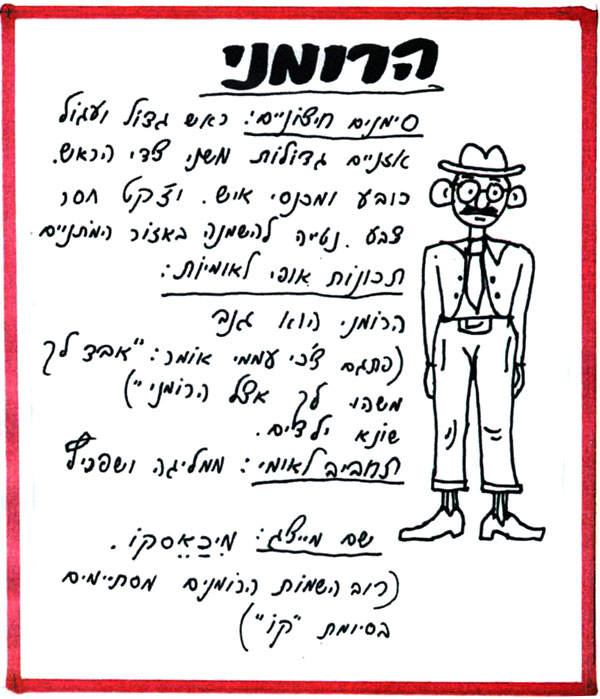 הרומני
סימנים חיצוניים: ראש גדול ועגול
אזניים גדולות משני צדי הראש.
כובע ומכנסי איש. וז'קט חסר
צבע. נטייה להשמנה באזור המותניים
תכונות אופי לאומיות:
הרומני הוא גנב
(פתגם צ'כי עממי אומר: "אבד לך
משהו לך אצל הרומני")
שונא ילדים.
תחביב לאומי: ממליגה ושפכיל
שם מייצג: מִיכָאֵסקוֹ.
(רוב השמות הרומנים מסתיימים
בסיומת "קו")